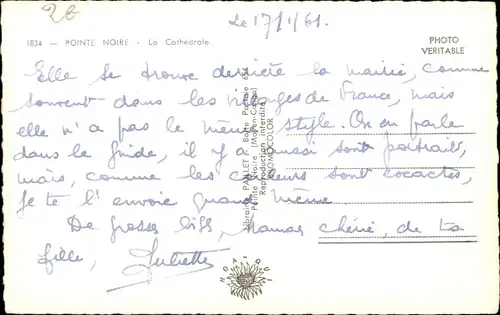 2€
Le 17/1/61.
1834 — POINTE NOIRE - La Cathédrale.
PHOTO
VERITABLE
Elle se trouve derrière la mairie, comme
souvent dans les villages de France, mais
elle n'a pas le même style. On en parle
dans le guide, il y a aussi sont portrait,
mais, comme les couleurs sont cocasses,
je te l'envoie quand même.
De grosses bises, Maman chérie, de ta
fille, Juliette
Librairie PAILLET - Boîte Postale 654
Pointe-Noire (Moyen-Congo)
Reproduction interdite
PROMOCOLOR